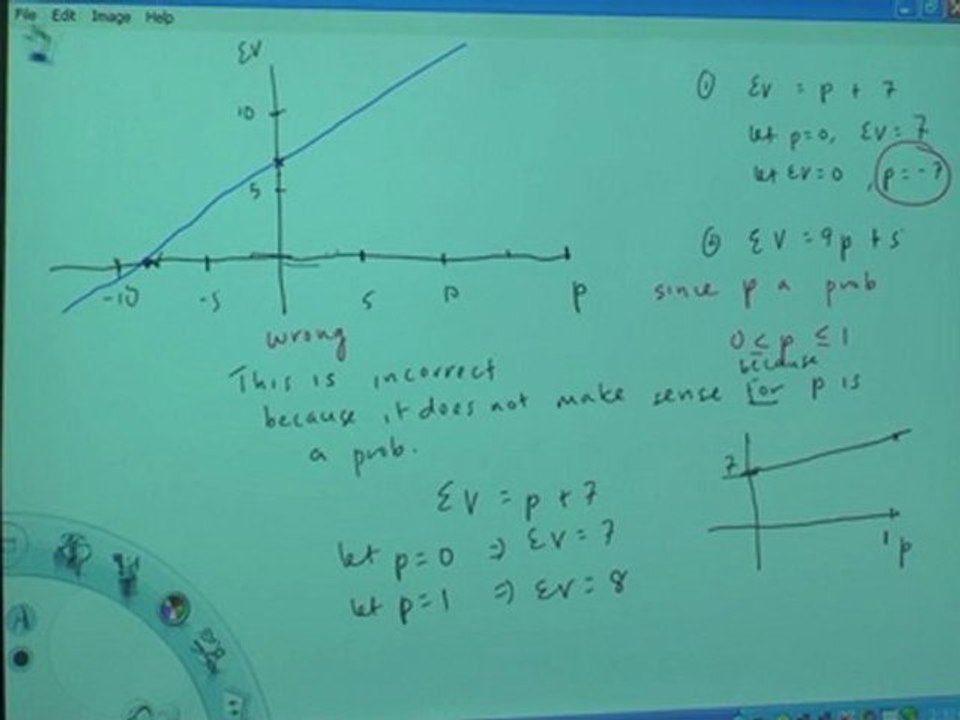 File Edit Image Help
EV
10
5
-10 -5 5 10 p
wrong
① EV = p + 7
let p=0, EV = 7
let EV = 0, p = -7
② EV = 9p + 5
since p a prob
0 ≤ p ≤ 1
This is incorrect
because
because it does not make sense for p is
a prob.
EV = p + 7
let p=0 ⇒ EV = 7
let p=1 ⇒ EV = 8
7
1 p